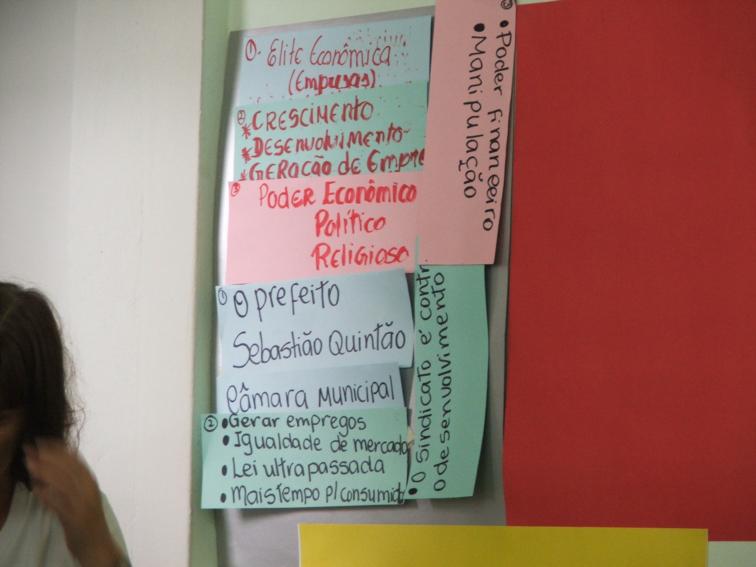 ①. Elite Econômica
(Empresas)
② * CRESCIMENTO
* DESENVOLVIMENTO
* GERAÇÃO de Empre
③ PODER Econômico
Político
RELIGIOSO
① O prefeito
Sebastião Quintão
Câmara Municipal
② • Gerar empregos
• Igualdade de mercado
• Lei ultrapassada
• Mais Tempo p/ consumid
③ • Poder financeiro
• Manipulação
• O Sindicato é contr
o desenvolvimento